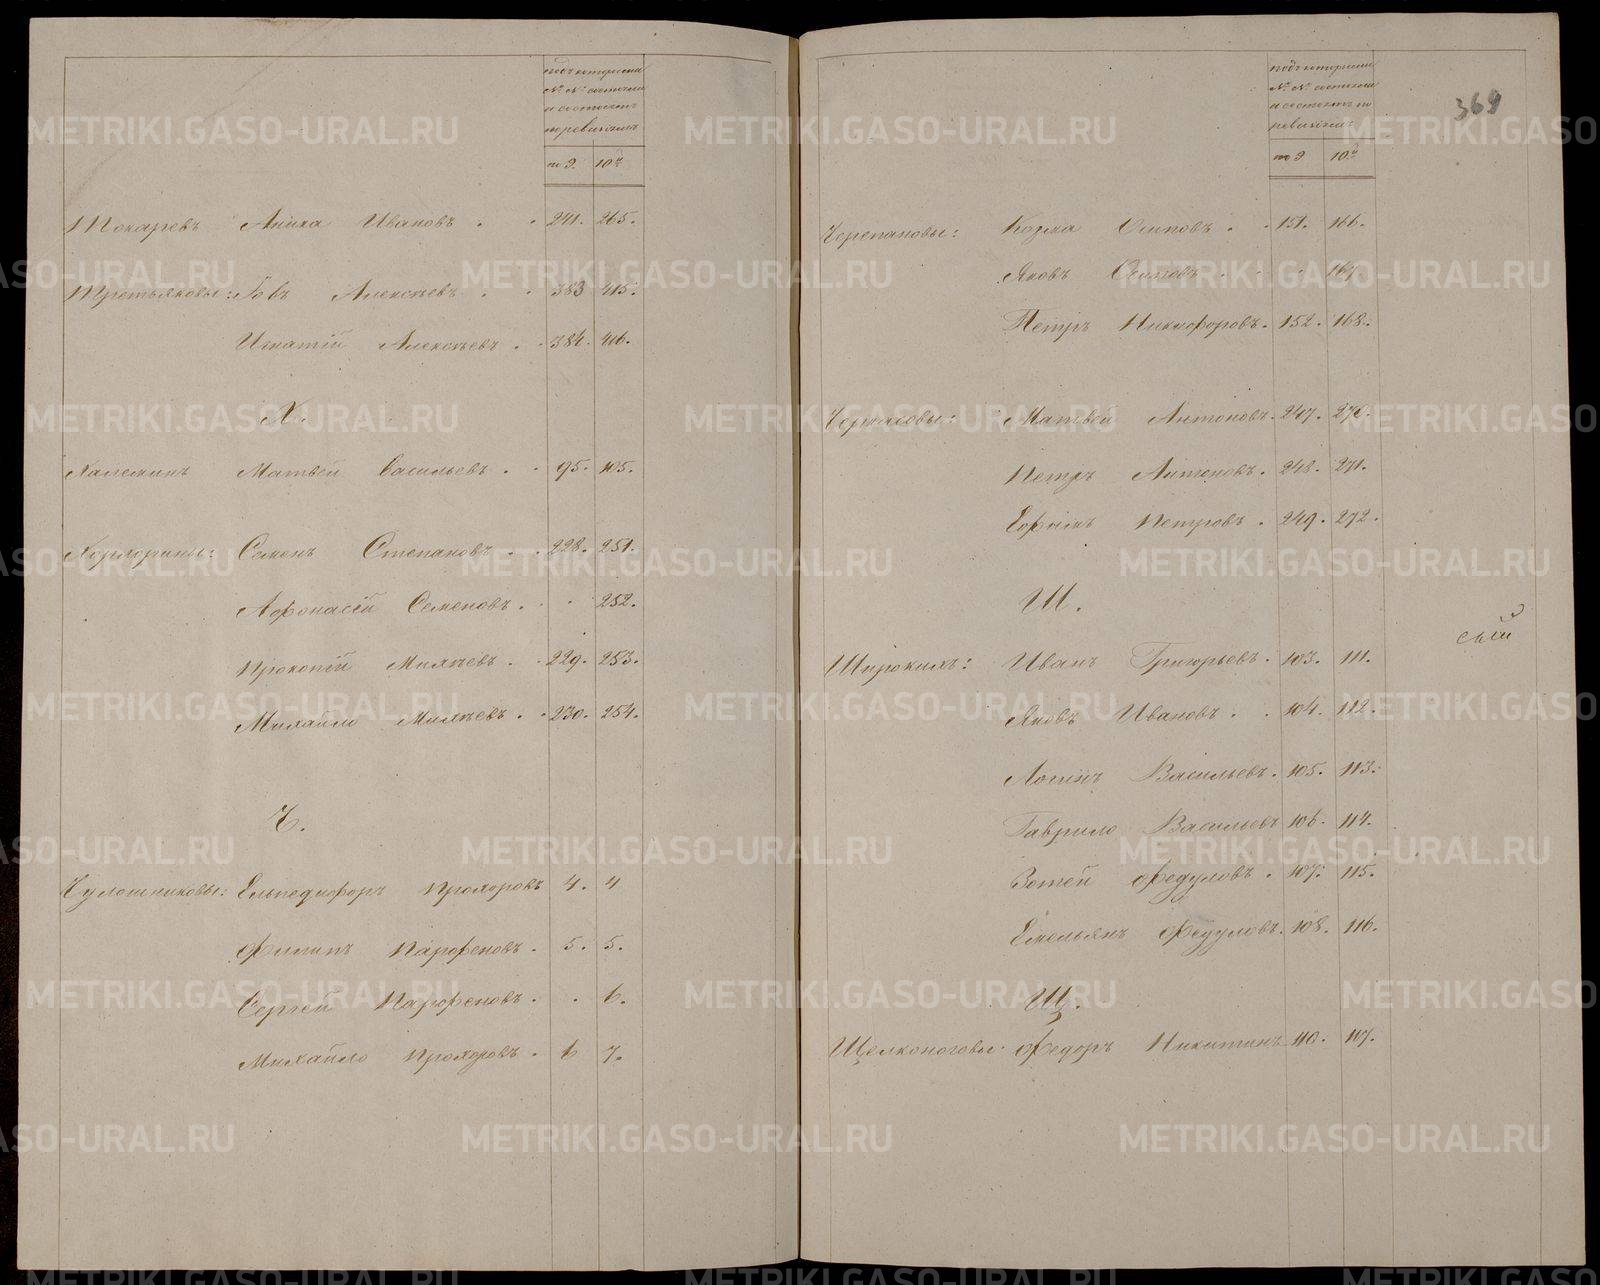 подъ которыми
№ № состояли
и состоятъ
по ревизіямъ
по 9. 10й
Токаревъ Аника Ивановъ . . 241. 265.
Третьяковы: Іовъ Алексѣевъ . . 383 415.
Игнатій Алексѣевъ . . 384. 416.
Х.
Халемина Матвей Васильевъ . . 95. 105.
Семенъ Степановъ . . 228. 251.
Афонасій Семеновъ . . . 252.
Прокопій Михѣевъ . . 229. 253.
Михайло Михѣевъ . . 230. 254.
Ч.
Чулошниковы: Ельпедифоръ Прохоровъ 4. 4
Филипъ Парфеновъ . 5. 5.
Сергей Парфеновъ . . 6.
Михайло Прохоровъ . 6 7.
369
подъ которыми
№ № состояли
и состоятъ по
ревизіямъ
по 9 10й
Черепановы: Козма Осиповъ . . 151. 166.
Яковъ Осиповъ . . . 167.
Петръ Никифоровъ . 152. 168.
Матвей Антоновъ . 247. 270.
Петръ Антоновъ . 248. 271.
Ефимъ Петровъ . 249. 272.
Ш.
Широкихъ: Иванъ Григорьевъ . 103. 111.
Яковъ Ивановъ . . 104. 112.
Логинъ Васильевъ . 105. 113.
Гаврило Васильевъ 106. 114.
Зотей Федуловъ . 107. 115.
Емельянъ Федуловъ . 108. 116.
Щ.
Щелконоговы: Федоръ Никитинъ 110. 107.
METRIKI.GASO-URAL.RU